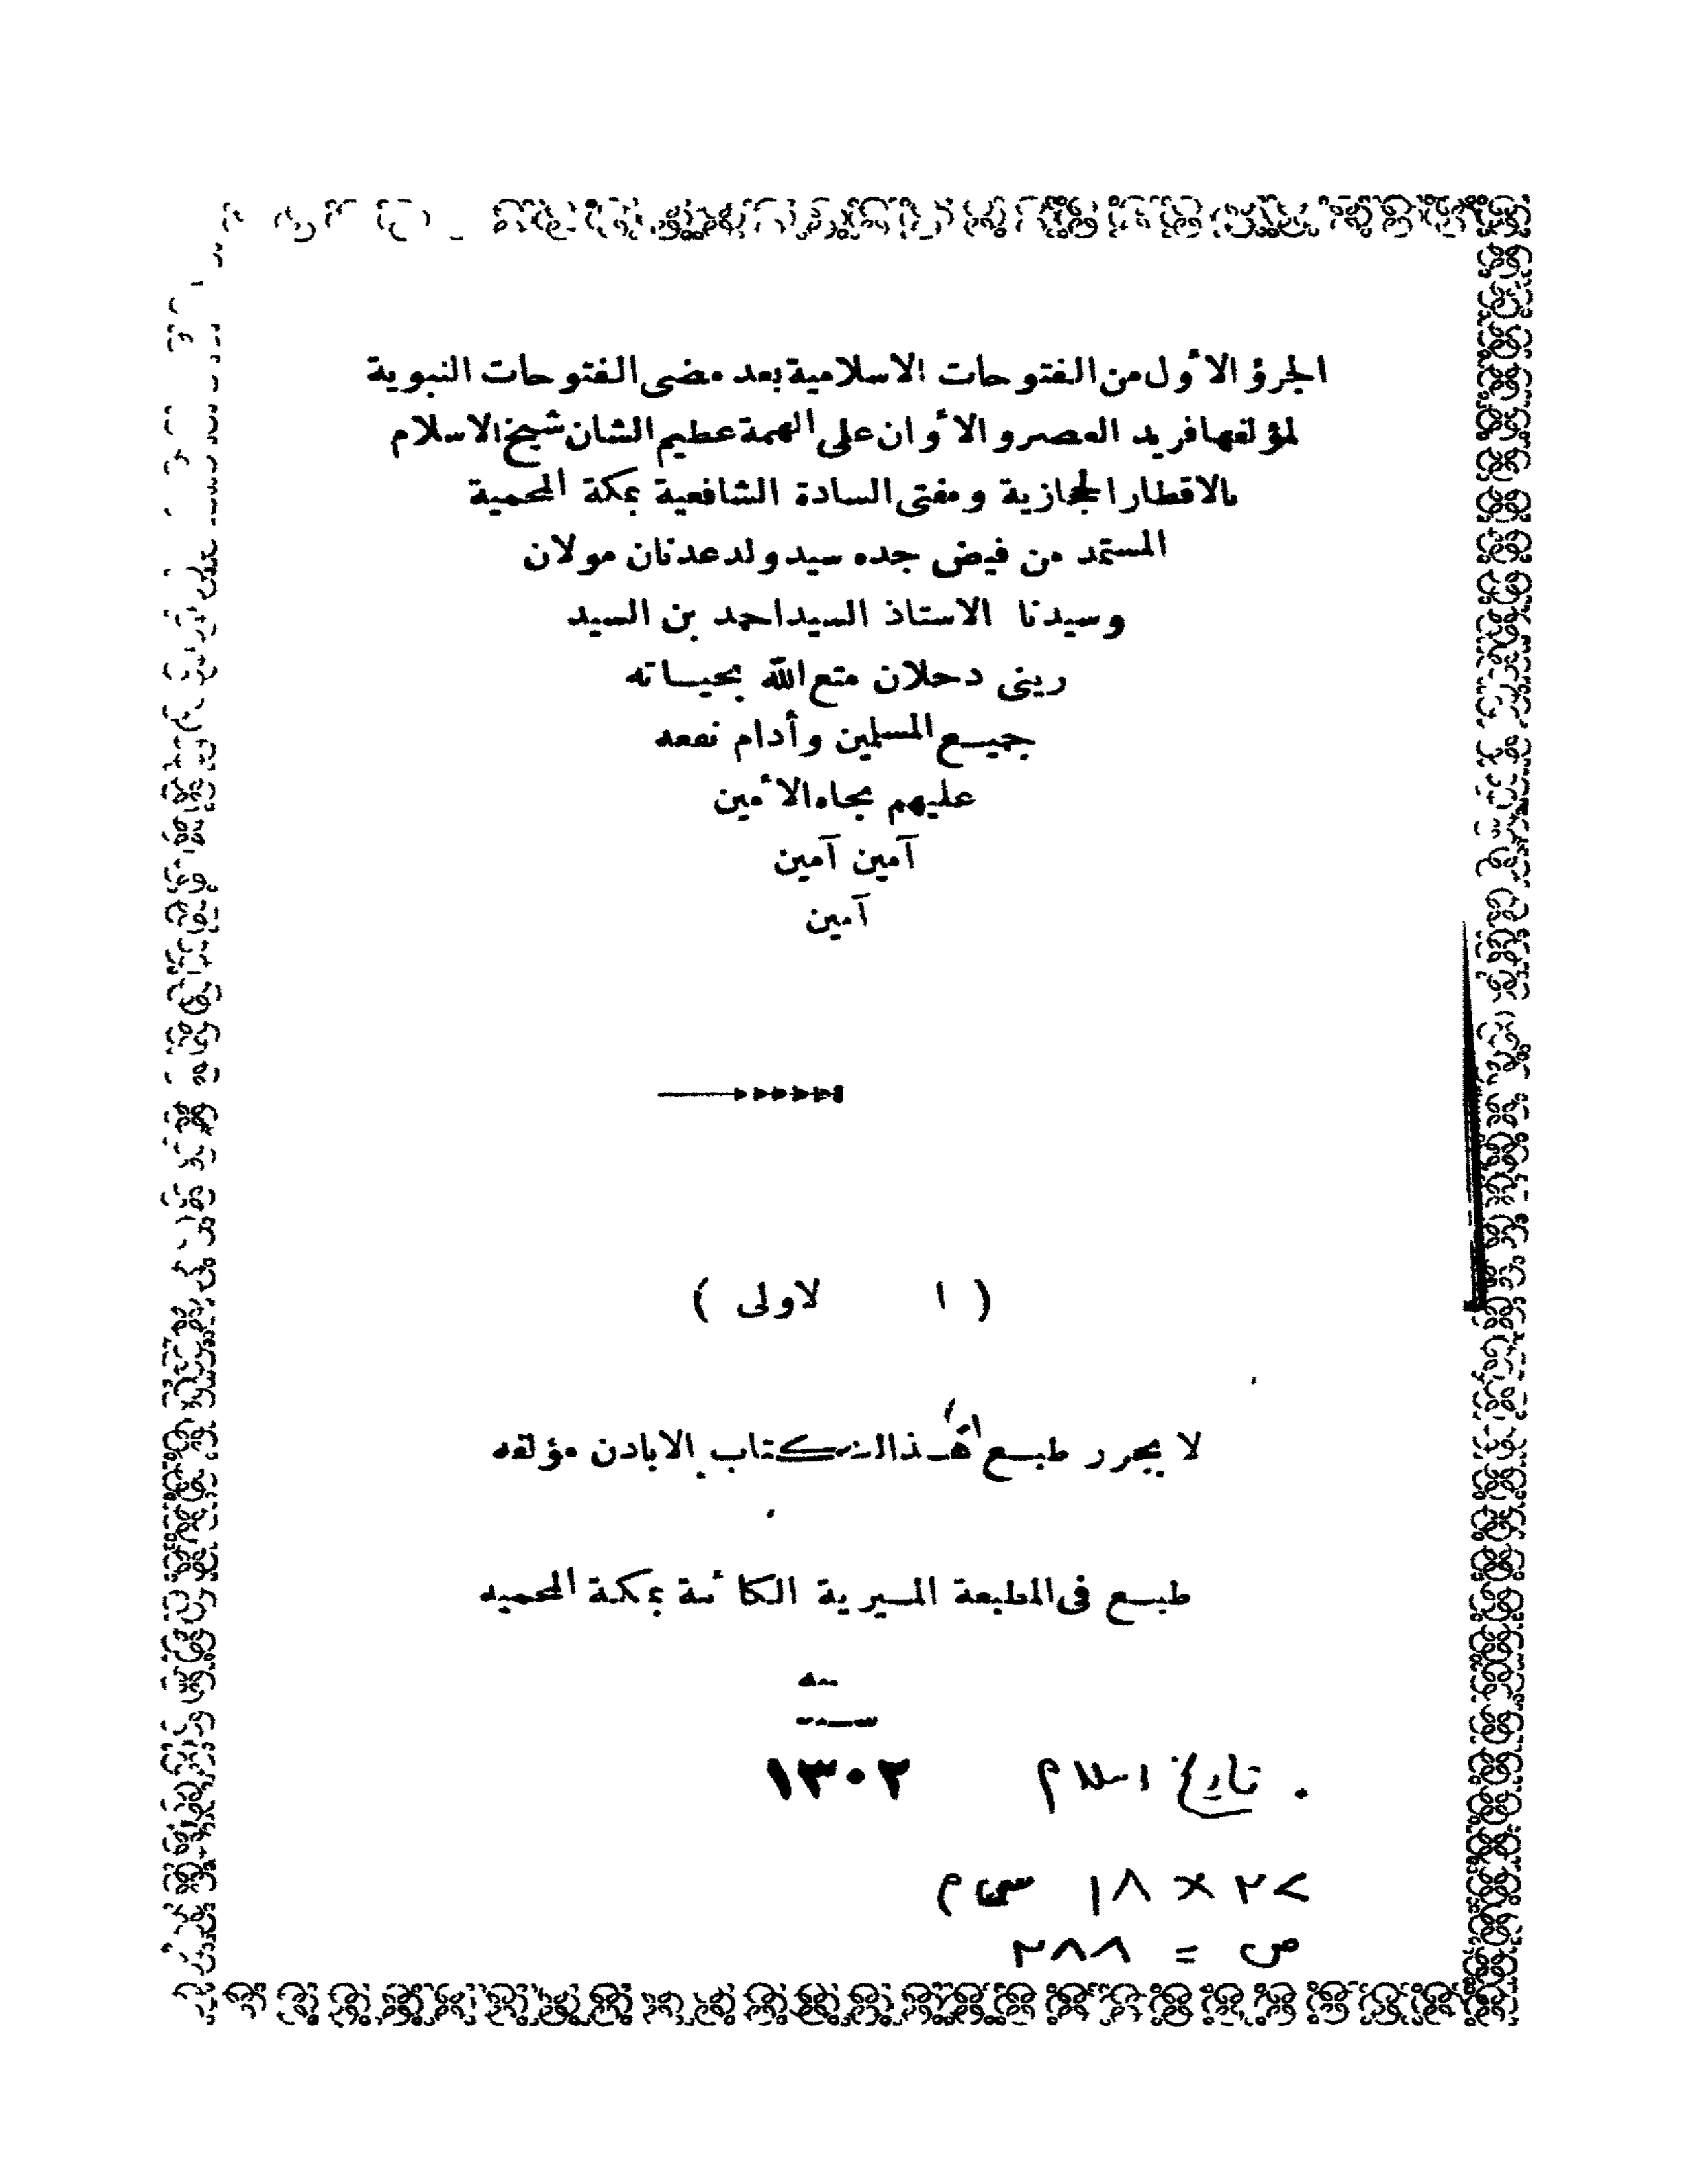 الجرؤ الأول من الفتوحات الاسلامية بعد مضى الفتوحات النبوية
لمؤلفها فريد العصر والأوان على الهمة عظيم الشان شيخ الاسلام
بالاقطار الحجازية ومفتى السادة الشافعية بمكة المحمية
المستمد من فيض جده سيد ولد عدنان مولان
وسيدنا الاستاذ السيد احمد بن السيد
رينى دحلان متع الله بحياته
جميع المسلمين وأدام نفعه
عليهم بجاه الأمين
آمين آمين
آمين
( ا لاولى )
لا يجرر طبع هذا الكتاب الا بادن مؤلفه
طبع فى المطبعة الميرية الكائنة بمكة المحميه
سنه
١٣٠٢
تاريخ اسلام
٢٧ × ١٨ س م
ص = ٢٨٨